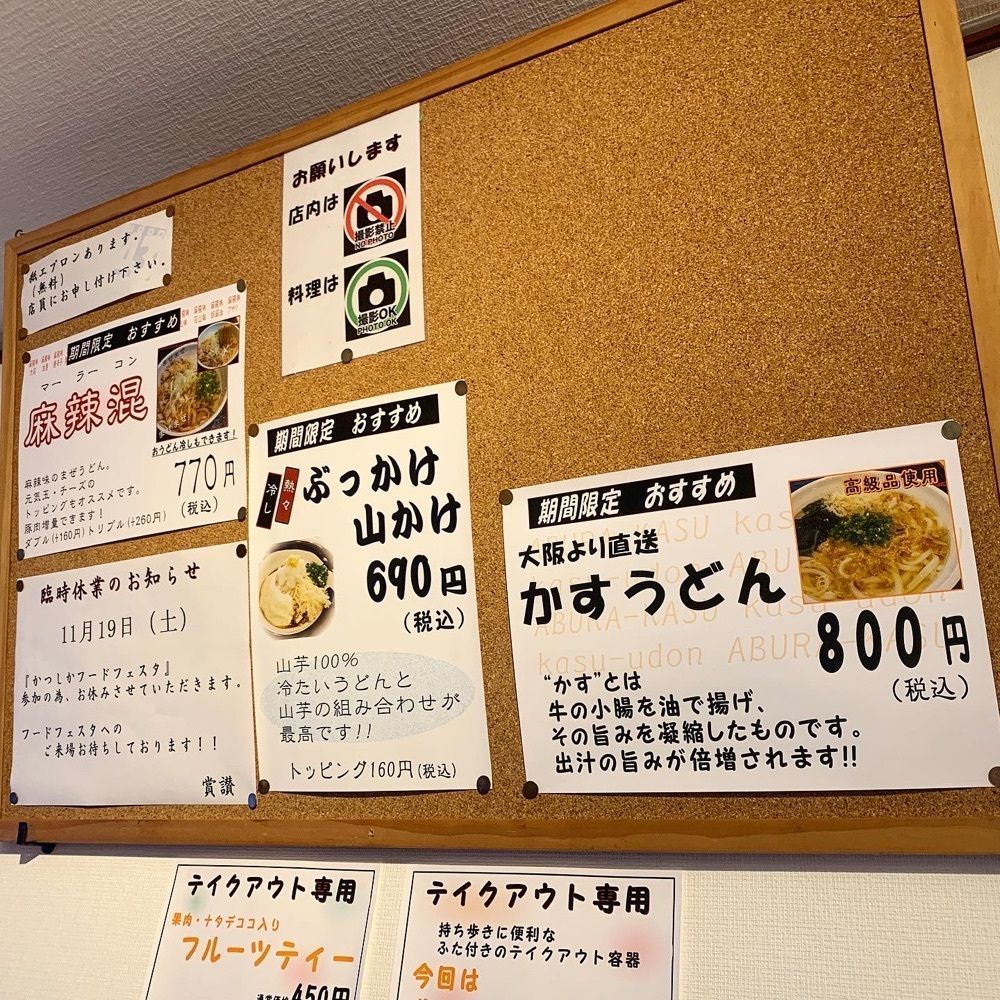 紙エプロンあります。
(無料)
店員にお申し付け下さい。
お願いします
店内は
撮影禁止
NO PHOTO
料理は
撮影OK
PHOTO OK
期間限定 おすすめ
マー ラー コン
麻辣混
おうどん冷しもできます!
770円
(税込)
麻辣味のまぜうどん。
元気玉・チーズの
トッピングもオススメです。
豚肉増量できます!
ダブル(+160円)トリプル(+260円)
臨時休業のお知らせ
11月19日(土)
『かつしかフードフェスタ』
参加の為、お休みさせていただきます。
フードフェスタへの
ご来場お待ちしております!!
賞讃
期間限定 おすすめ
冷し
熱々
ぶっかけ
山かけ
690円
(税込)
山芋100%
冷たいうどんと
山芋の組み合わせが
最高です!!
トッピング160円(税込)
期間限定 おすすめ
高級品使用
大阪より直送
かすうどん
800円
(税込)
kasu-udon ABURA-KASU
“かす”とは
牛の小腸を油で揚げ、
その旨みを凝縮したものです。
出汁の旨みが倍増されます!!
テイクアウト専用
果肉・ナタデココ入り
フルーツティー
通常価格 450円
テイクアウト専用
持ち歩きに便利な
ふた付きのテイクアウト容器
今回は